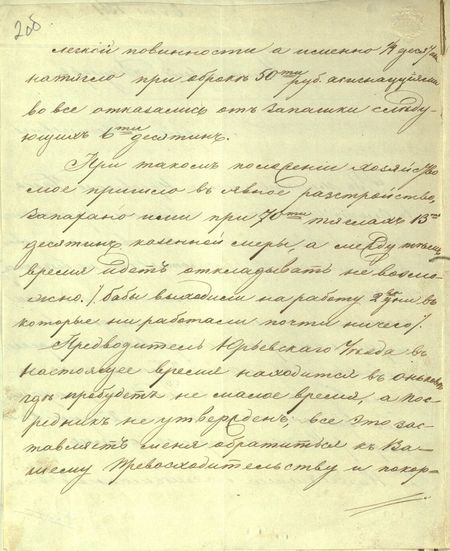 2об
легкой повинности а именно 1/4 десятин
на тягло при оброке 50ти руб. ассигнациями
вовсе отказались отъ запашки следу-
ющихъ 6ти десятинъ.
При такомъ положеніи хозяйство
мое пришло въ явное разстройство,
запахано ими при 70ти тяглахъ 13
десятинъ казенной меры, а между темъ
время идетъ откладывать не возмо-
жно. /. бабы выходили на работу 2 дни въ
которые ни работали почти ничего /.
Предводитель Юрьевскаго Уезда въ
настоящее время находится въ
где пробудетъ не малое время, а пос-
редникъ не утвержденъ все это зас-
тавляетъ меня обратиться къ Ва-
шему Превосходительству и покор-